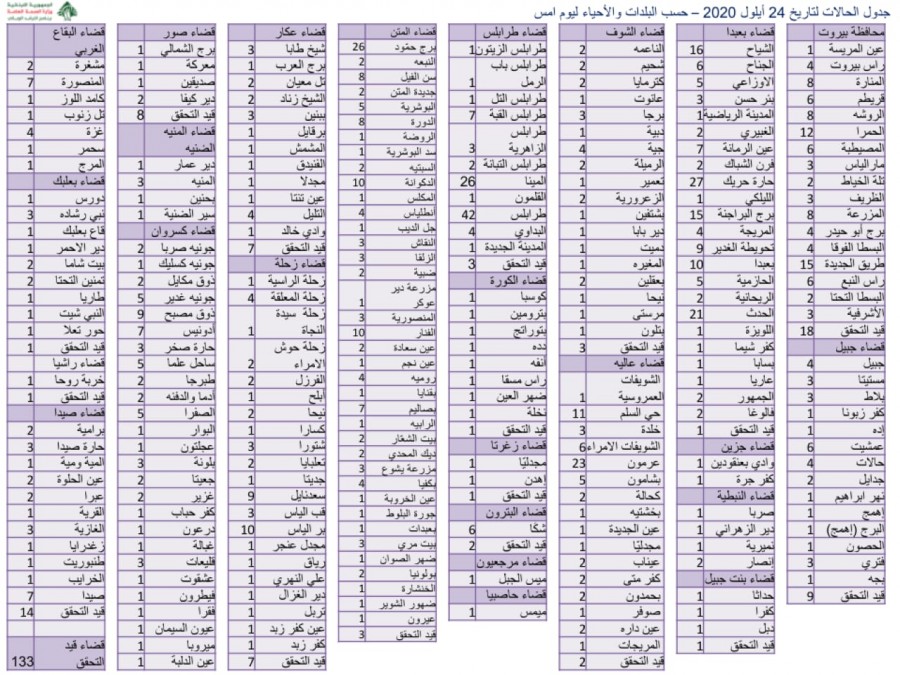 الجمهورية اللبنانية
وزارة الصحة العامة
جدول الحالات لتاريخ 24 أيلول 2020 – حسب البلدات والأحياء ليوم امس
محافظة بيروت
عين المريسة 1
راس بيروت 4
المنارة 8
قريطم 6
الروشه 8
الحمرا 12
المصيطبة 6
مار الياس 3
تلة الخياط 2
الظريف 3
المزرعة 8
برج أبو حيدر 4
البسطا الفوقا 4
طريق الجديدة 15
راس النبع 6
البسطا التحتا 2
الأشرفية 3
قيد التحقق 18
قضاء جبيل
جبيل 4
مستيتا 3
بلاط 3
كفر زبونا 1
إده 1
عمشيت 6
حالات 4
جدايل 2
نهر ابراهيم 1
إهمج 1
البرج (إهمج) 1
الحصون 1
فتري 3
بجه 1
قيد التحقق 9
قضاء بعبدا
الشياح 16
الجناح 6
الاوزاعي 5
بئر حسن 3
المدينة الرياضية 1
الغبيري 2
عين الرمانة 7
فرن الشباك 2
حارة حريك 27
الليلكي 1
برج البراجنة 15
المريجة 4
تحويطة الغدير 9
بعبدا 10
الحازمية 5
الريحانية 2
الحدث 21
اللويزة 1
كفر شيما 1
بسابا 1
عاريا 1
الجمهور 2
فالوغا 2
قيد التحقق 1
قضاء جزين
وادي بعنقودين 1
كفر جرة 1
قضاء النبطية
صربا 1
دير الزهراني 1
نميرية 1
إنصار 2
قضاء بنت جبيل
حداثا 1
كفرا 1
دبل 1
قيد التحقق 1
قضاء الشوف
الناعمه 2
شحيم 2
كترمايا 2
عانوت 1
برجا 3
دبية 1
جية 4
الرميلة 2
تعمير 1
الزعرورية 2
بشتفين 1
دير بابا 1
دميت 1
المغيره 1
بعقلين 2
نيحا 1
مرستي 1
بتلون 1
قيد التحقق 3
قضاء عاليه
الشويفات
العمروسية 1
حي السلم 11
خلدة 3
الشويفات الامراء 6
عرمون 23
بشامون 5
كحالة 2
بخشتيه 1
عين الجديدة 1
مجدليّا 1
عيناب 2
كفر متى 2
بحمدون 2
صوفر 1
عين داره 2
المريجات 1
قيد التحقق 2
قضاء طرابلس
طرابلس الزيتون 1
طرابلس باب
الرمل 1
طرابلس التل 1
طرابلس القبة 7
طرابلس
الزاهرية 3
طرابلس التبانة 2
المينا 26
القلمون 1
طرابلس 42
البداوي 4
المدينة الجديدة 1
قيد التحقق 3
قضاء الكورة
كوسبا 1
بترومين 1
بتوراتج 1
دده 1
أنفه 1
راس مسقا 1
ضهر العين 1
نخلة 1
قيد التحقق 1
قضاء زغرتا
مجدليّا 1
إهدن 1
قيد التحقق 1
قضاء البترون
شكّا 6
قيد التحقق 2
قضاء مرجعيون
ميس الجبل 1
قضاء حاصبيا
ميمس 1
قضاء المتن
برج حمّود 26
النبعه 2
سن الفيل 8
جديدة المتن 2
البوشرية 5
الدورة 8
الروضة 1
سد البوشرية 1
السبتيه 2
الدكوانة 10
المكلس 1
أنطلياس 4
جل الديب 1
النقاش 3
الزلقا 3
ضبية 2
مزرعة دير
عوكر 1
المنصورية 3
الفنار 10
عين سعادة 2
عين نجم 1
روميه 4
بقنايا 1
بصاليم 7
الرابيه 1
بيت الشعّار 2
ديك المحدي 2
مزرعة يشوع 3
بكفيا 4
عين الخروبة 1
جورة البلوط 1
بعبدات 1
بيت مري 3
ضهر الصوان 1
بولونيا 2
الخنشارة 1
ضهور الشوير 1
عيرون 1
قيد التحقق 3
قضاء عكار
شيخ طابا 3
برج العرب 1
تل معيان 2
الشيخ زناد 2
ببنين 3
برقايل 1
المشمش 1
القنيدق 1
مجدلا 1
عين تنتا 1
التليل 4
وادي خالد 1
قيد التحقق 7
قضاء زحلة
زحلة الراسية 1
زحلة المعلقة 4
زحلة سيدة
النجاة 1
زحلة حوش
الامراء 2
الفرزل 2
أبلح 1
نيحا 2
كسارا 1
شتورا 3
تعلبايا 2
جديتا 1
سعدنايل 9
قب الياس 3
بر الياس 10
مجدل عنجر 1
رياق 1
علي النهري 1
دير الغزال 1
تربل 1
عين كفر زبد 1
كفر زبد 1
قيد التحقق 7
قضاء صور
برج الشمالي 1
معركة 1
صديقين 1
دير كيفا 2
قيد التحقق 8
قضاء المنيه
الضنيه
دير عمار 1
المنيه 3
بحنين 1
سير الضنية 1
قضاء كسروان
جونيه صربا 2
جونيه كسليك 1
ذوق مكايل 2
جونيه غدير 5
ذوق مصبح 9
أدونيس 7
حارة صخر 3
ساحل علما 5
طبرجا 2
أدما والدفنه 2
الصفرا 5
البوار 1
عجلتون 1
بلونة 3
جعيتا 2
غزير 2
كفر حباب 1
درعون 1
غبالة 1
قليعات 3
عشقوت 1
فيطرون 1
فقرا 1
عيون السيمان 1
ميروبا 1
عين الدلبة 1
قضاء البقاع
الغربي
مشغرة 2
المنصورة 7
كامد اللوز 1
تل زنوب 1
غزة 4
سحمر 1
المرج 1
قضاء بعلبك
دورس 1
نبي رشاده 3
قاع بعلبك 1
دير الاحمر 1
بيت شاما 2
تمنين التحتا 2
طاريا 1
النبي شيت 1
حور تعلا 1
قيد التحقق 1
قضاء راشيا
خربة روحا 1
قيد التحقق 1
قضاء صيدا
برامية 2
حارة صيدا 3
المية ومية 1
عين الحلوة 2
عبرا 2
القرية 1
الغازية 3
زغدرايا 1
طنبوريت 1
الخرايب 1
صيدا 7
قيد التحقق 14
قضاء قيد
التحقق 133